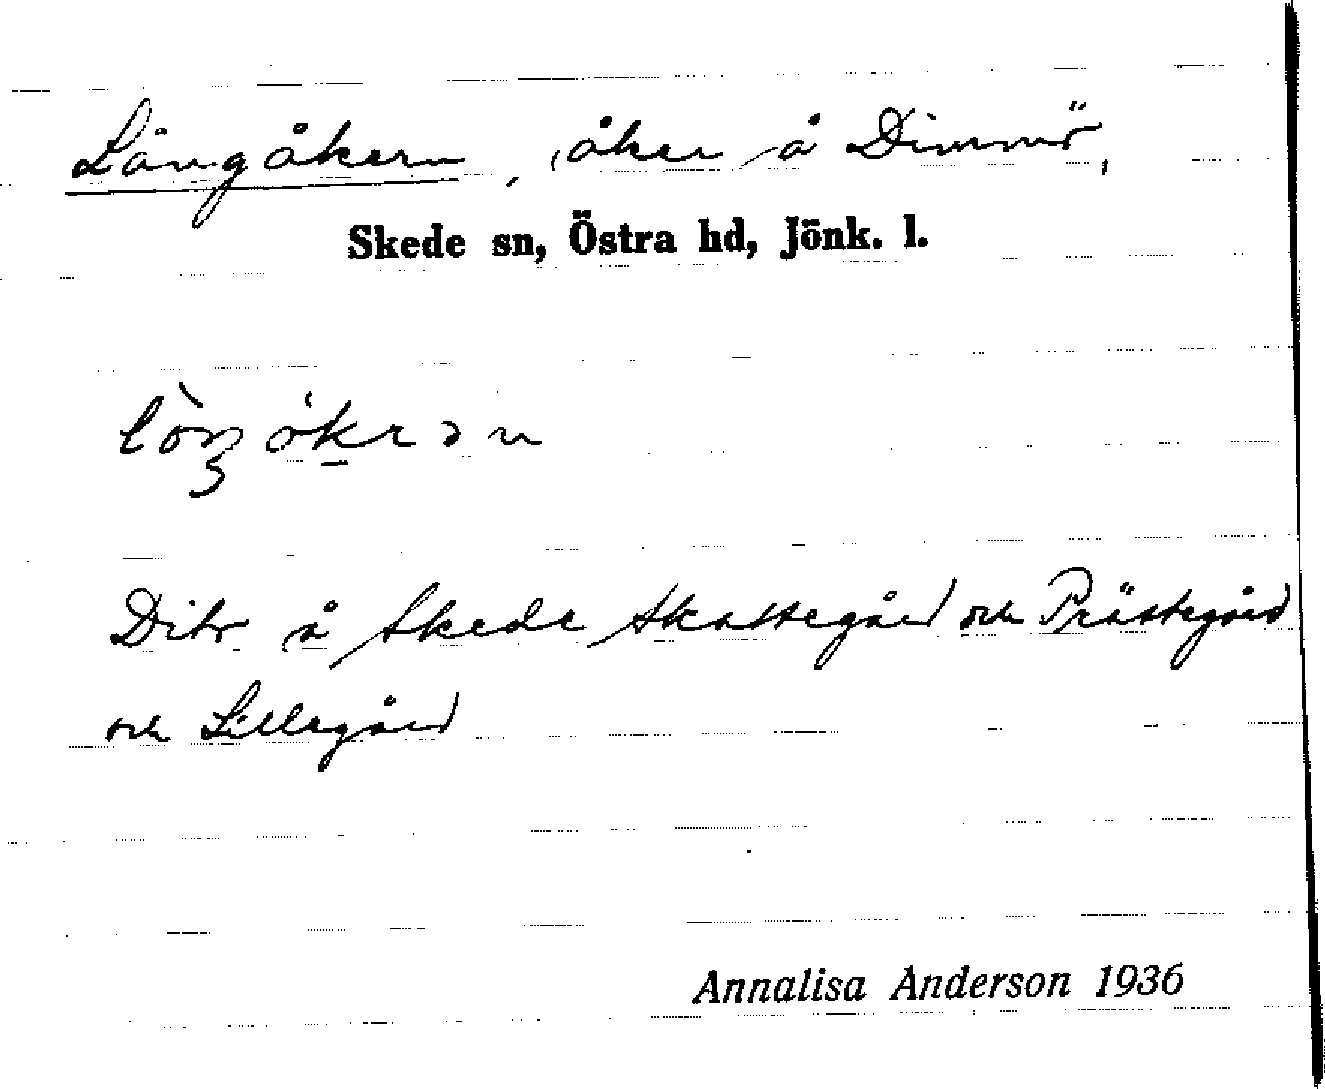 Långåkern, åker å Dimmö,
Skede sn, Östra hd, Jönk. l.
lòŋókrən
Dito å Skede Skattegård och Prästegård
och Lillegård
Annalisa Anderson 1936